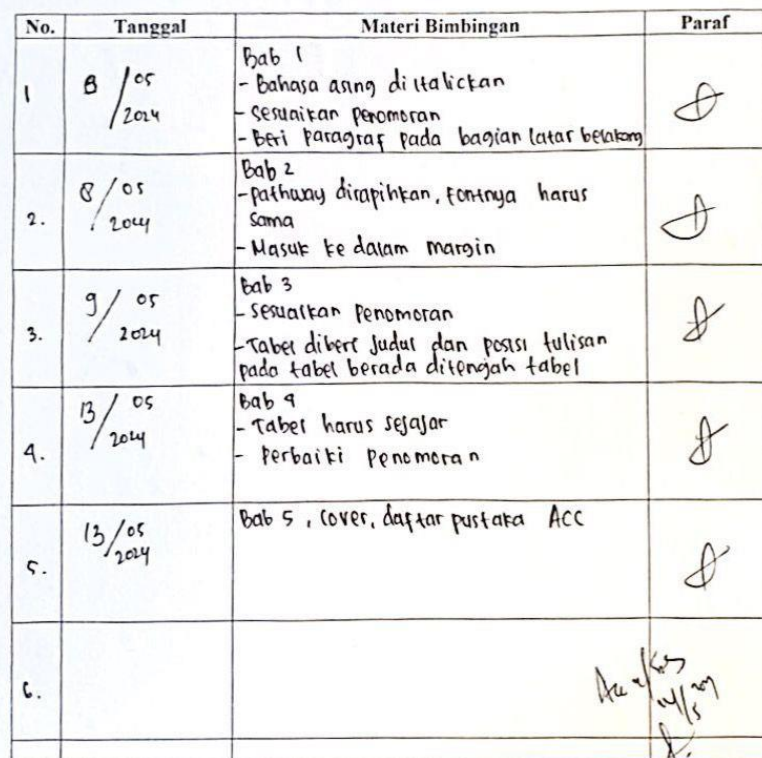 No. Tanggal Materi Bimbingan Paraf
1 8/05 2024
Bab 1
- Bahasa asing di italickan
- Sesuaikan penomoran
- Beri paragraf pada bagian latar belakang
2. 8/05 2024
Bab 2
- pathway dirapihkan, fontnya harus
sama
- Masuk ke dalam margin
3. 9/05 2024
Bab 3
- Sesuaikan Penomoran
- Tabel diberi Judul dan posisi tulisan
pada tabel berada ditengah tabel
4. 13/05 2024
Bab 4
- Tabel harus sejajar
- Perbaiki Penomoran
5. 13/05 2024
Bab 5, cover, daftar pustaka ACC
6.
Acc